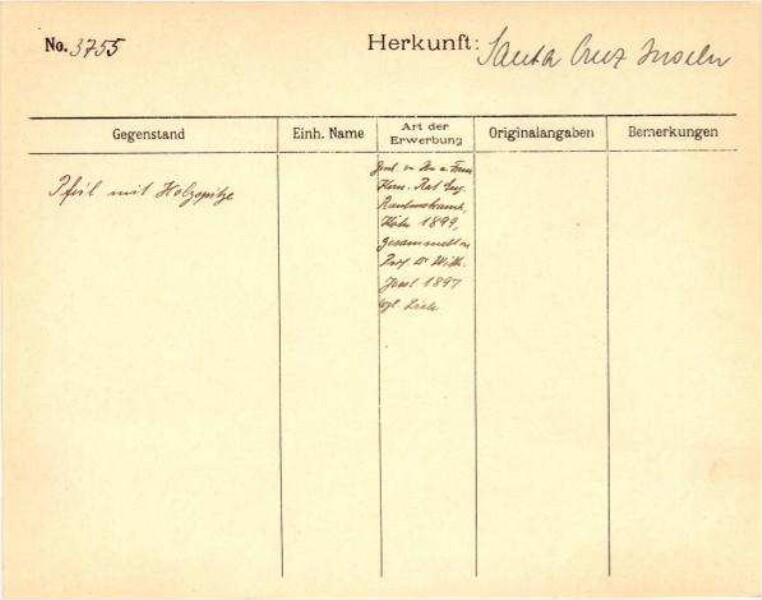 No. 3755
Herkunft: Santa Cruz Inseln
Gegenstand
Einh. Name
Art der
Erwerbung
Originalangaben
Bemerkungen
Pfeil mit Holzspitze
Gesch. v. Hrn u. Frau
Kom. Rat Eug.
Rautenstrauch,
Köln 1899,
gesammelt v.
Prof. Dr Wilh.
Joest 1897
vgl. Liste